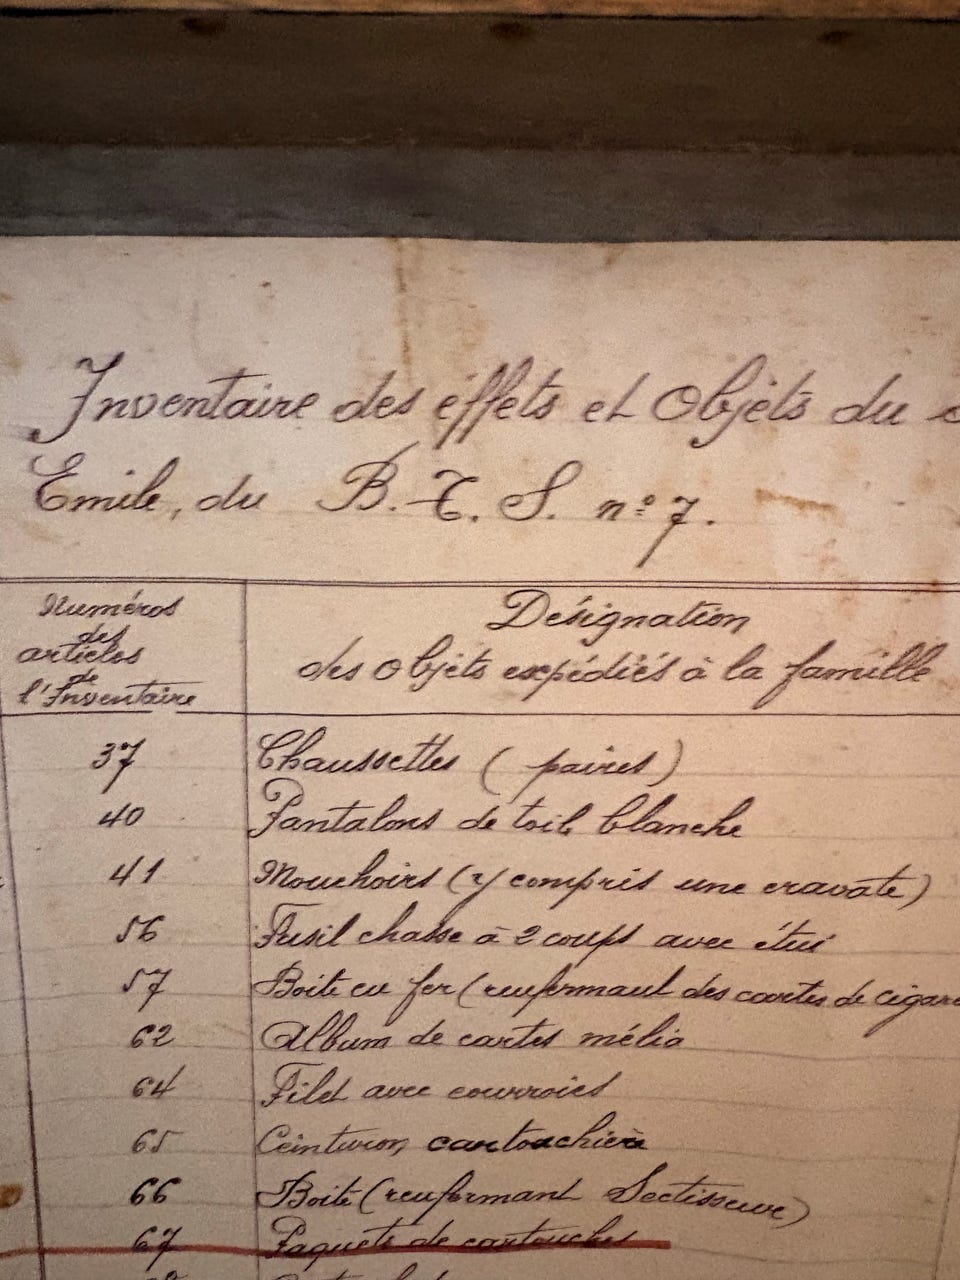 Inventaire des éffets et Objets du
Emile, du B.T.S. nº 7.
Numéros des articles de l'Inventaire
Désignation
des objets expédiés à la famille
37 Chaussettes ( paires)
40 Pantalons de toile blanche
41 Mouchoirs (y compris une cravate)
56 Fusil chasse à 2 coups avec étui
57 Boite en fer (renfermant des cartes de
62 Album de cartes mélia
64 Filet avec courroies
65 Ceinturon cartouchière
66 Boite (renfermant
67 Paquets de cartouches